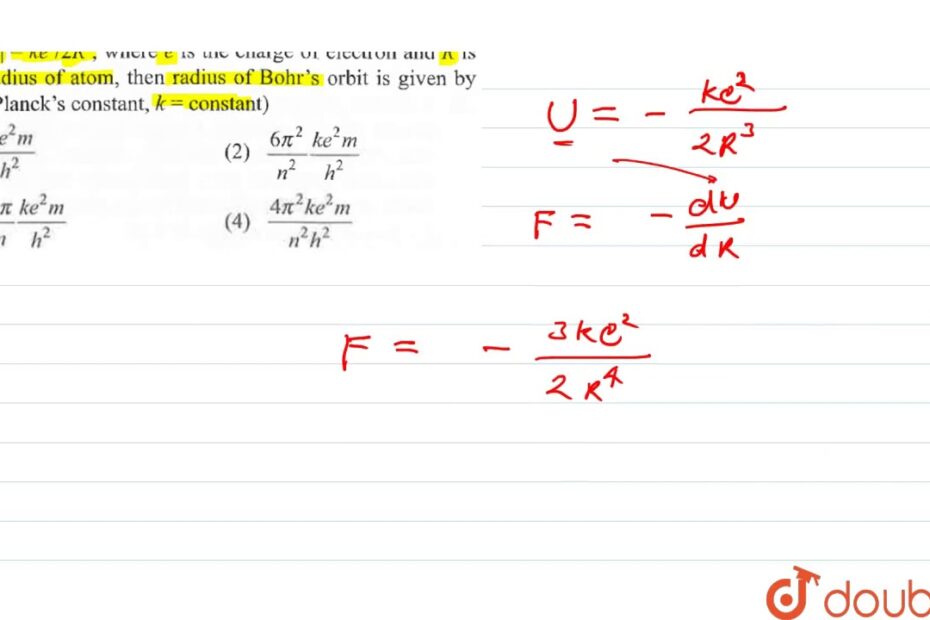 = ke²/2R³, where e is the charge of electron and R is
dius of atom, then radius of Bohr's orbit is given by
Planck's constant, k = constant)
e²m
h²
(2) 6π²/n² ke²m/h²
π/n ke²m/h²
(4) 4π²ke²m/n²h²
U = - ke²/2R³
F = - dU/dR
F = - 3ke²/2R⁴
doub